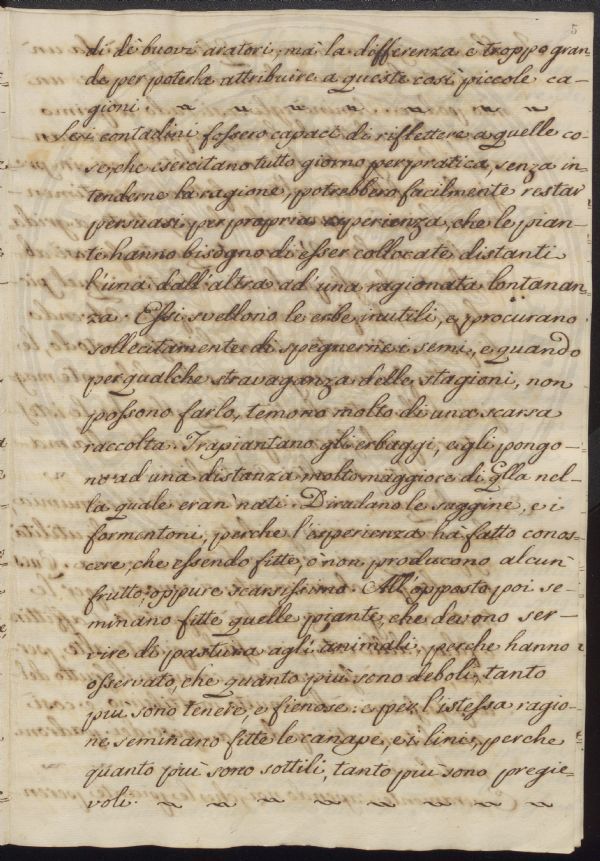 5
di de buovi aratori, mà la differenza e troppo gran
de per poterla attribuire a queste così piccole ca-
gioni
Se i contadini fossero capaci di riflettere a quelle co-
se, che esercitano tutto giorno per pratica, senza in-
tenderne la ragione, potrebbero facilmente restar
persuasi per propria esperienza, che le pian-
te hanno bisogno di esser collocate distanti
l'una dall'altra ad una ragionata lontanan
za. Essi svellono le erbe inutili, e procurano
sollecitamente di spegnerne i semi, e quando
per qualche stravaganza delle stagioni, non
possono farlo, temono molto di una scarsa
raccolta. Trapiantano gli erbaggi, e gli pongo-
no ad una distanza molto maggiore di qlla nel-
la quale eran nati. Diradano le saggine, e i
formentoni, perche l'esperienza hà fatto conos
cere, che essendo fitte, ò non producono alcun
frutto, oppure scarsissimo. All'opposto poi se-
minano fitte quelle piante, che devono ser-
vire di pastura agli animali, perche hanno
osservato, che quanto più sono deboli, tanto
più sono tenere, e fienose: e per l'istessa ragio-
ne seminano fitte le canape, e i lini, perche
quanto più sono sottili, tanto più sono pregie-
voli.